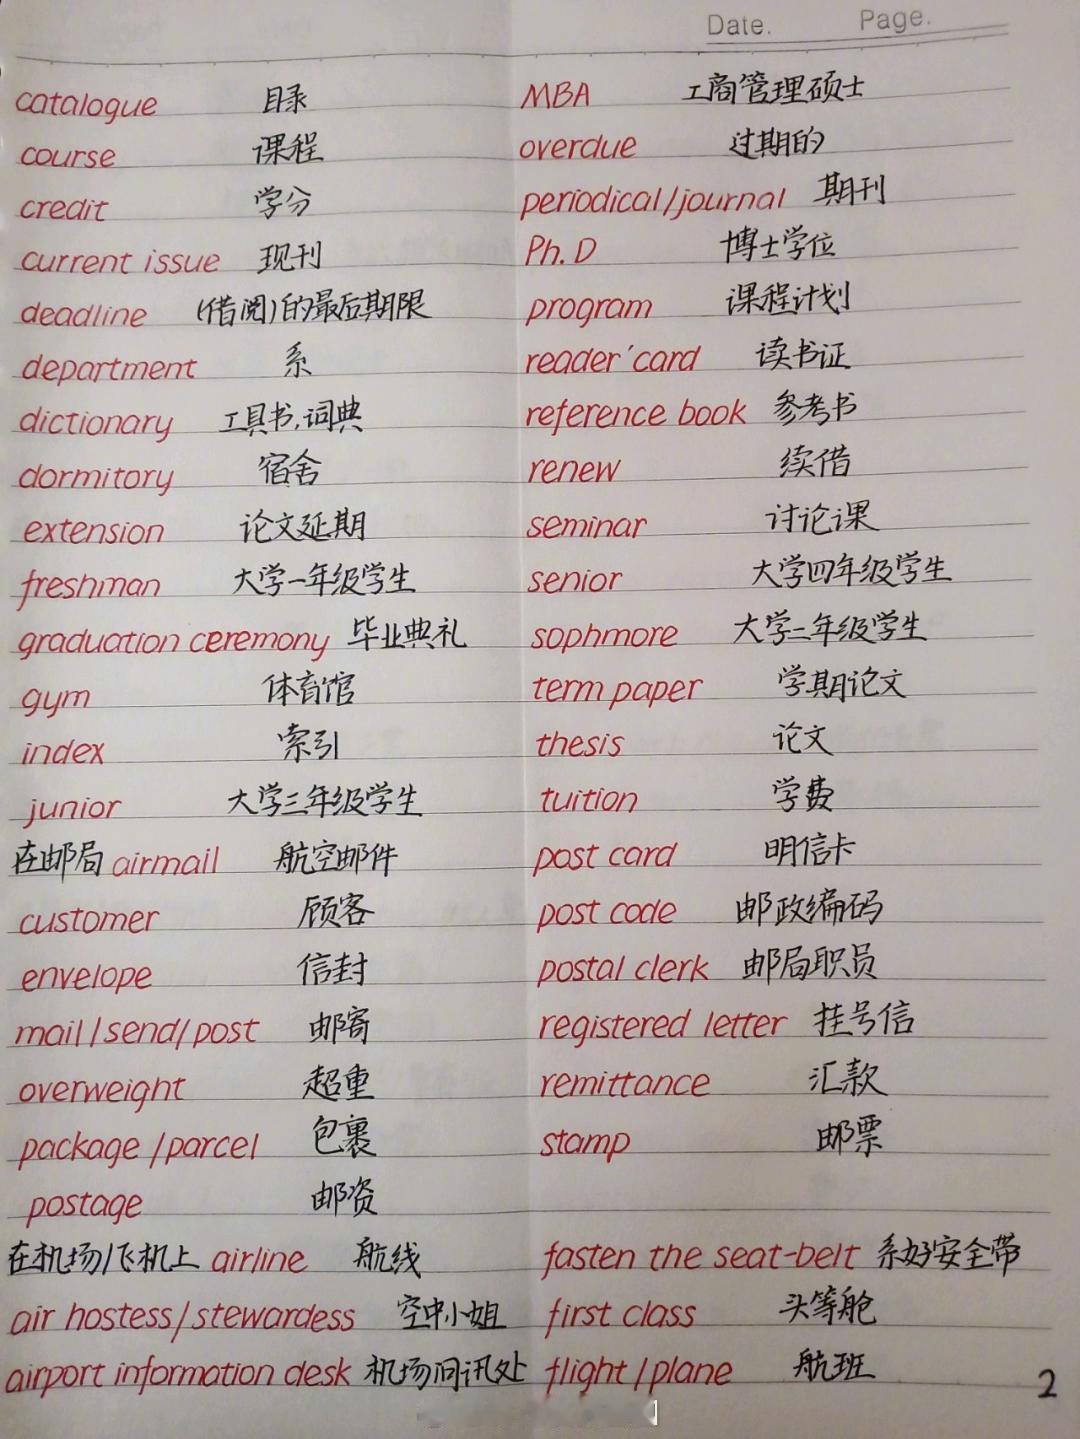 Date. Page.
catalogue 目录
course 课程
credit 学分
current issue 现刊
deadline (借阅)的最后期限
department 系
dictionary 工具书,词典
dormitory 宿舍
extension 论文延期
freshman 大学一年级学生
graduation ceremony 毕业典礼
gym 体育馆
index 索引
junior 大学三年级学生
在邮局 airmail 航空邮件
customer 顾客
envelope 信封
mail/send/post 邮寄
overweight 超重
package/parcel 包裹
postage 邮资
在机场/飞机上 airline 航线
air hostess/stewardess 空中小姐
airport information desk 机场问讯处
MBA 工商管理硕士
overdue 过期的
periodical/journal 期刊
Ph.D 博士学位
program 课程计划
reader'card 读书证
reference book 参考书
renew 续借
seminar 讨论课
senior 大学四年级学生
sophmore 大学二年级学生
term paper 学期论文
thesis 论文
tuition 学费
post card 明信卡
post code 邮政编码
postal clerk 邮局职员
registered letter 挂号信
remittance 汇款
stamp 邮票
fasten the seat-belt 系好安全带
first class 头等舱
flight/plane 航班
2